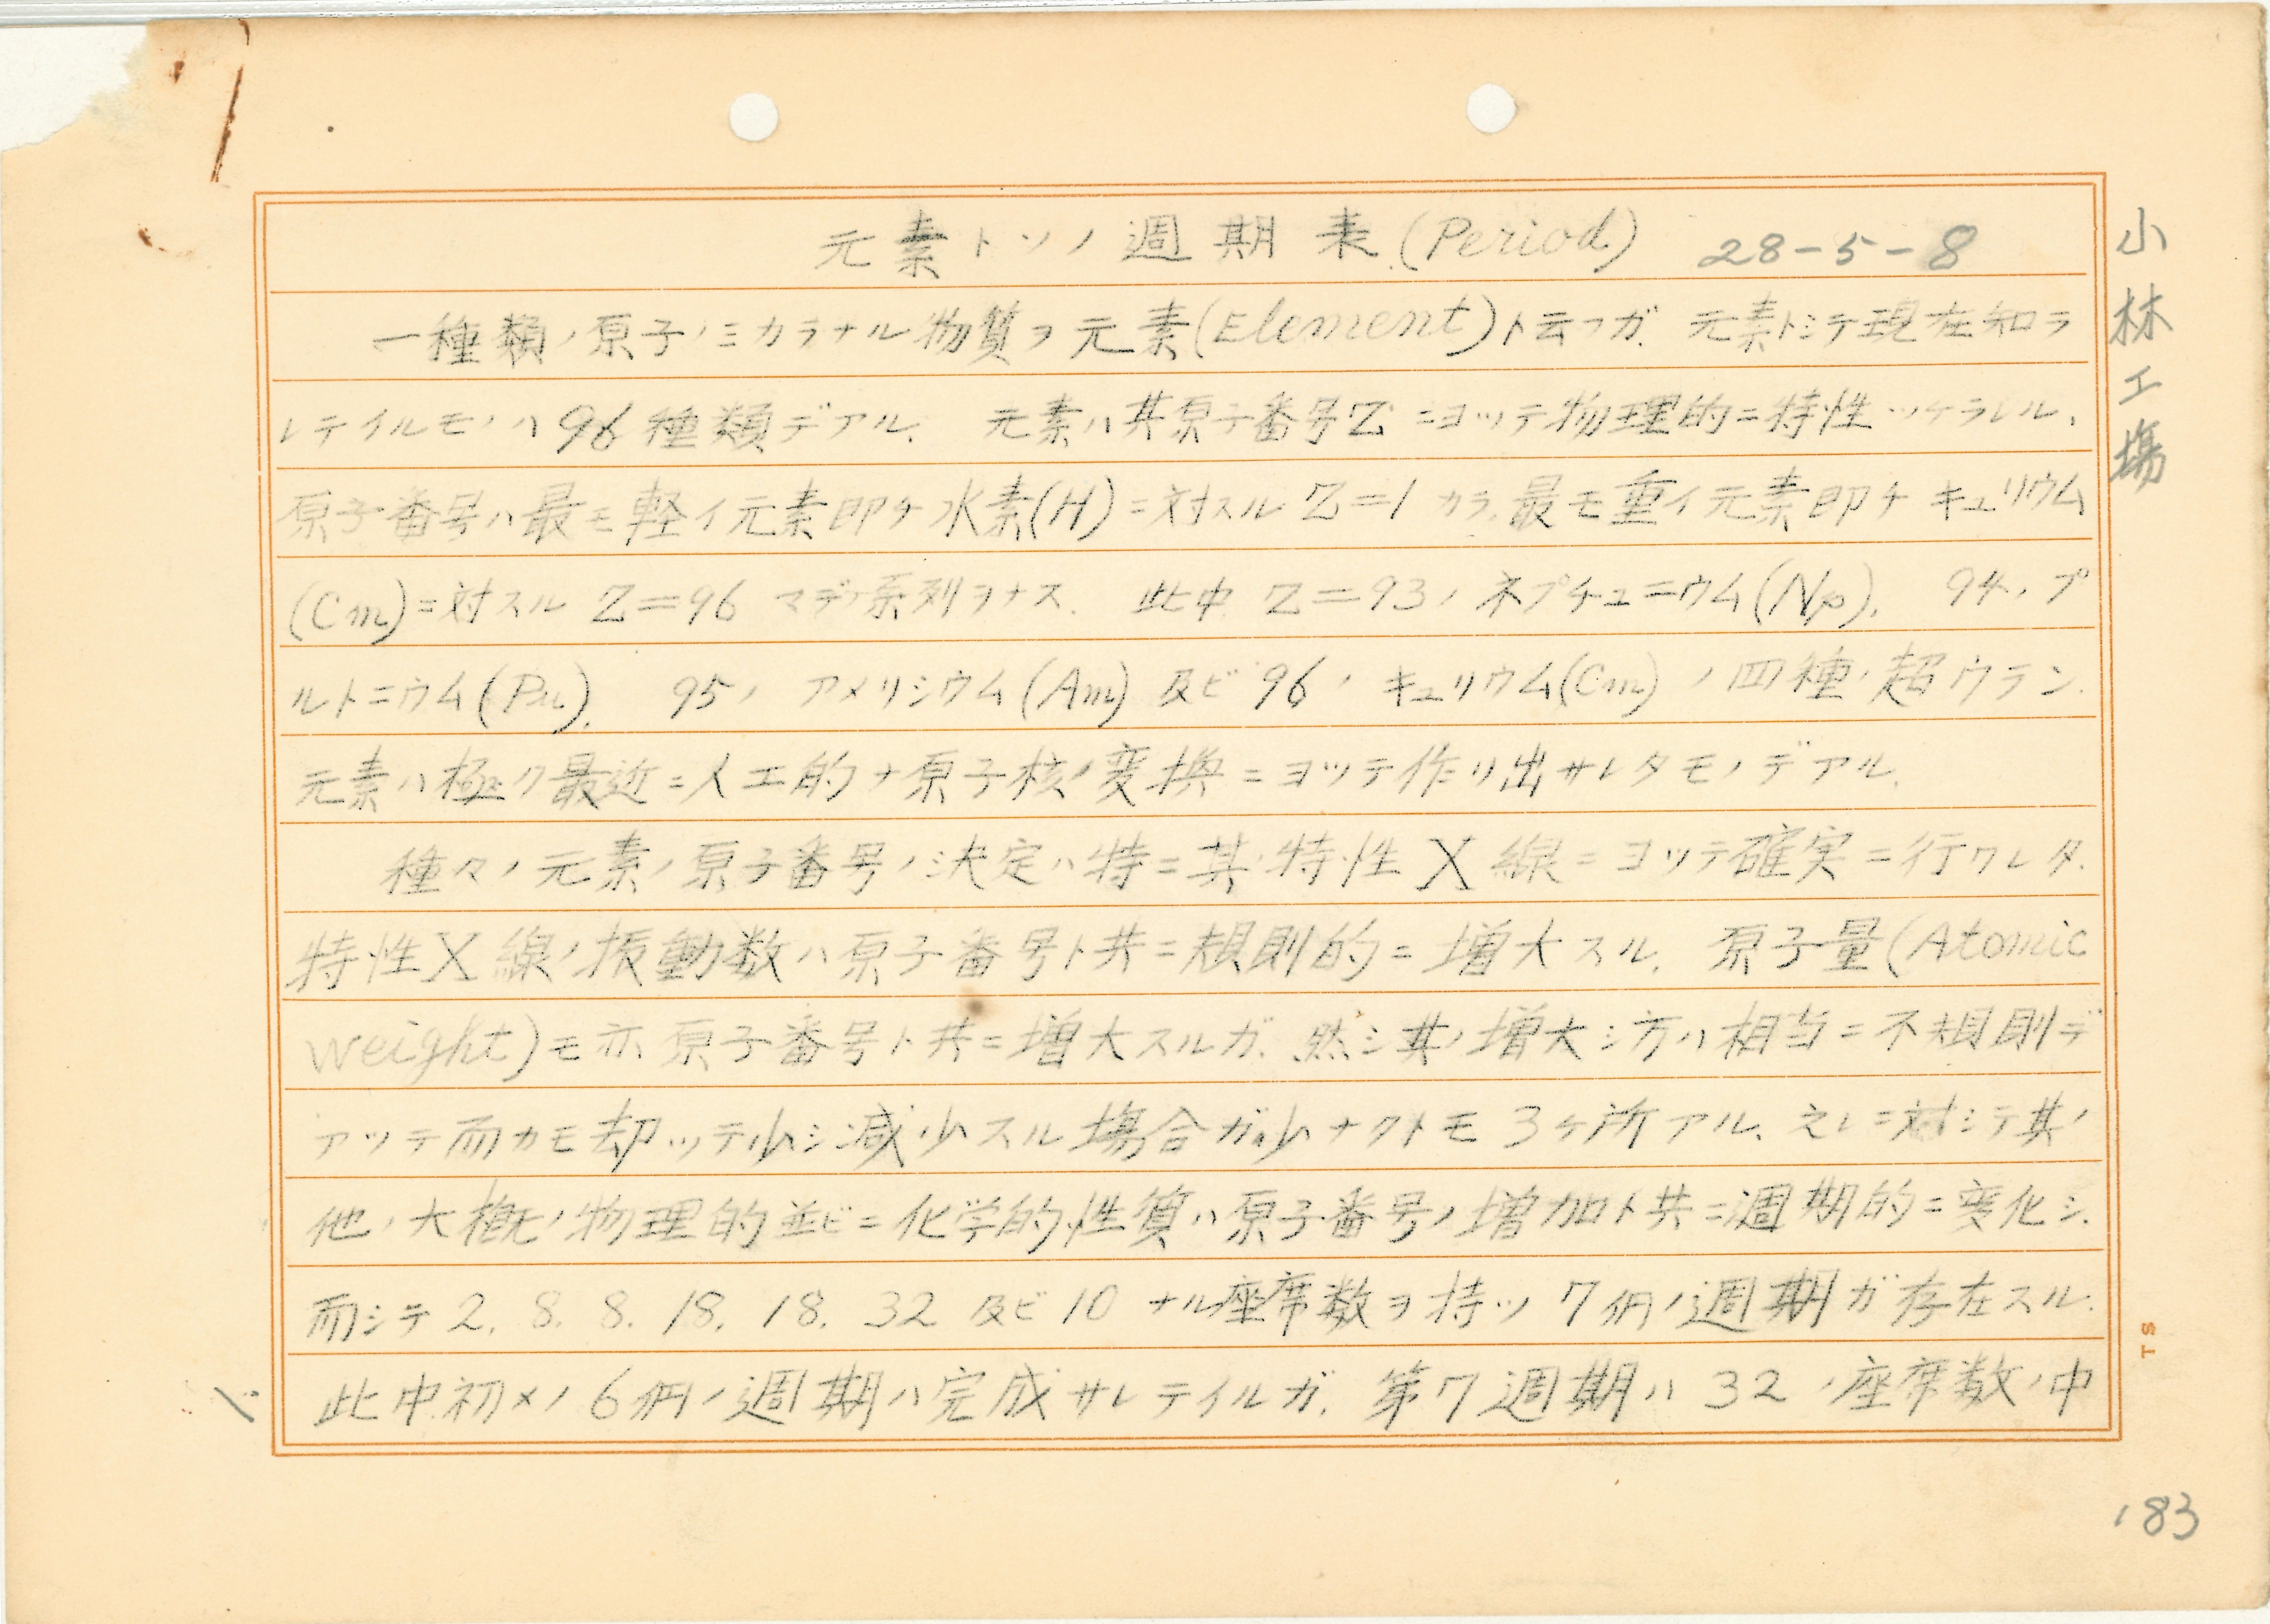 元素トソノ週期表(Period) 28-5-8
一種類ノ原子ノミカラナル物質ヲ元素(Element)ト云フガ、元素トシテ現在知ラ
レテイルモノハ96種類デアル、 元素ハ其原子番号Zニヨッテ物理的ニ特性ツケラレル、
原子番号ハ最モ軽イ元素即チ水素(H)ニ対スルZ=1カラ、最モ重イ元素即チキュリウム
(Cm)ニ対スルZ=96マデノ系列ヲナス、 此中Z=93ノネプチュニウム(Np)、 94ノプ
ルトニウム(Pu)、 95ノアメリシウム(Am)及ビ96ノキュリウム(Cm)ノ四種ノ超ウラン
元素ハ極ク最近ニ人工的ナ原子核ノ変換ニヨッテ作リ出サレタモノデアル、
種々ノ元素ノ原子番号ノ決定ハ特ニ其ノ特性X線ニヨッテ確実ニ行ワレタ、
特性X線ノ振動数ハ原子番号ト共ニ規則的ニ増大スル、 原子量(Atomic
weight)モ亦原子番号ト共ニ増大スルガ、然シ其ノ増大シ方ハ相当ニ不規則デ
アッテ而カモ却ッテ少シ減少スル場合ガ少ナクトモ3ヶ所アル、之レニ対シテ其ノ
他ノ大概ノ物理的並ビニ化学的性質ハ原子番号ノ増加ト共ニ週期的ニ変化シ、
而シテ2, 8, 8, 18, 18, 32及ビ10ナル座席数ヲ持ツ7個ノ週期ガ存在スル、
此中初メノ6個ノ週期ハ完成サレテイルガ、第7週期ハ32ノ座席数ノ中
小林工場
TS
183